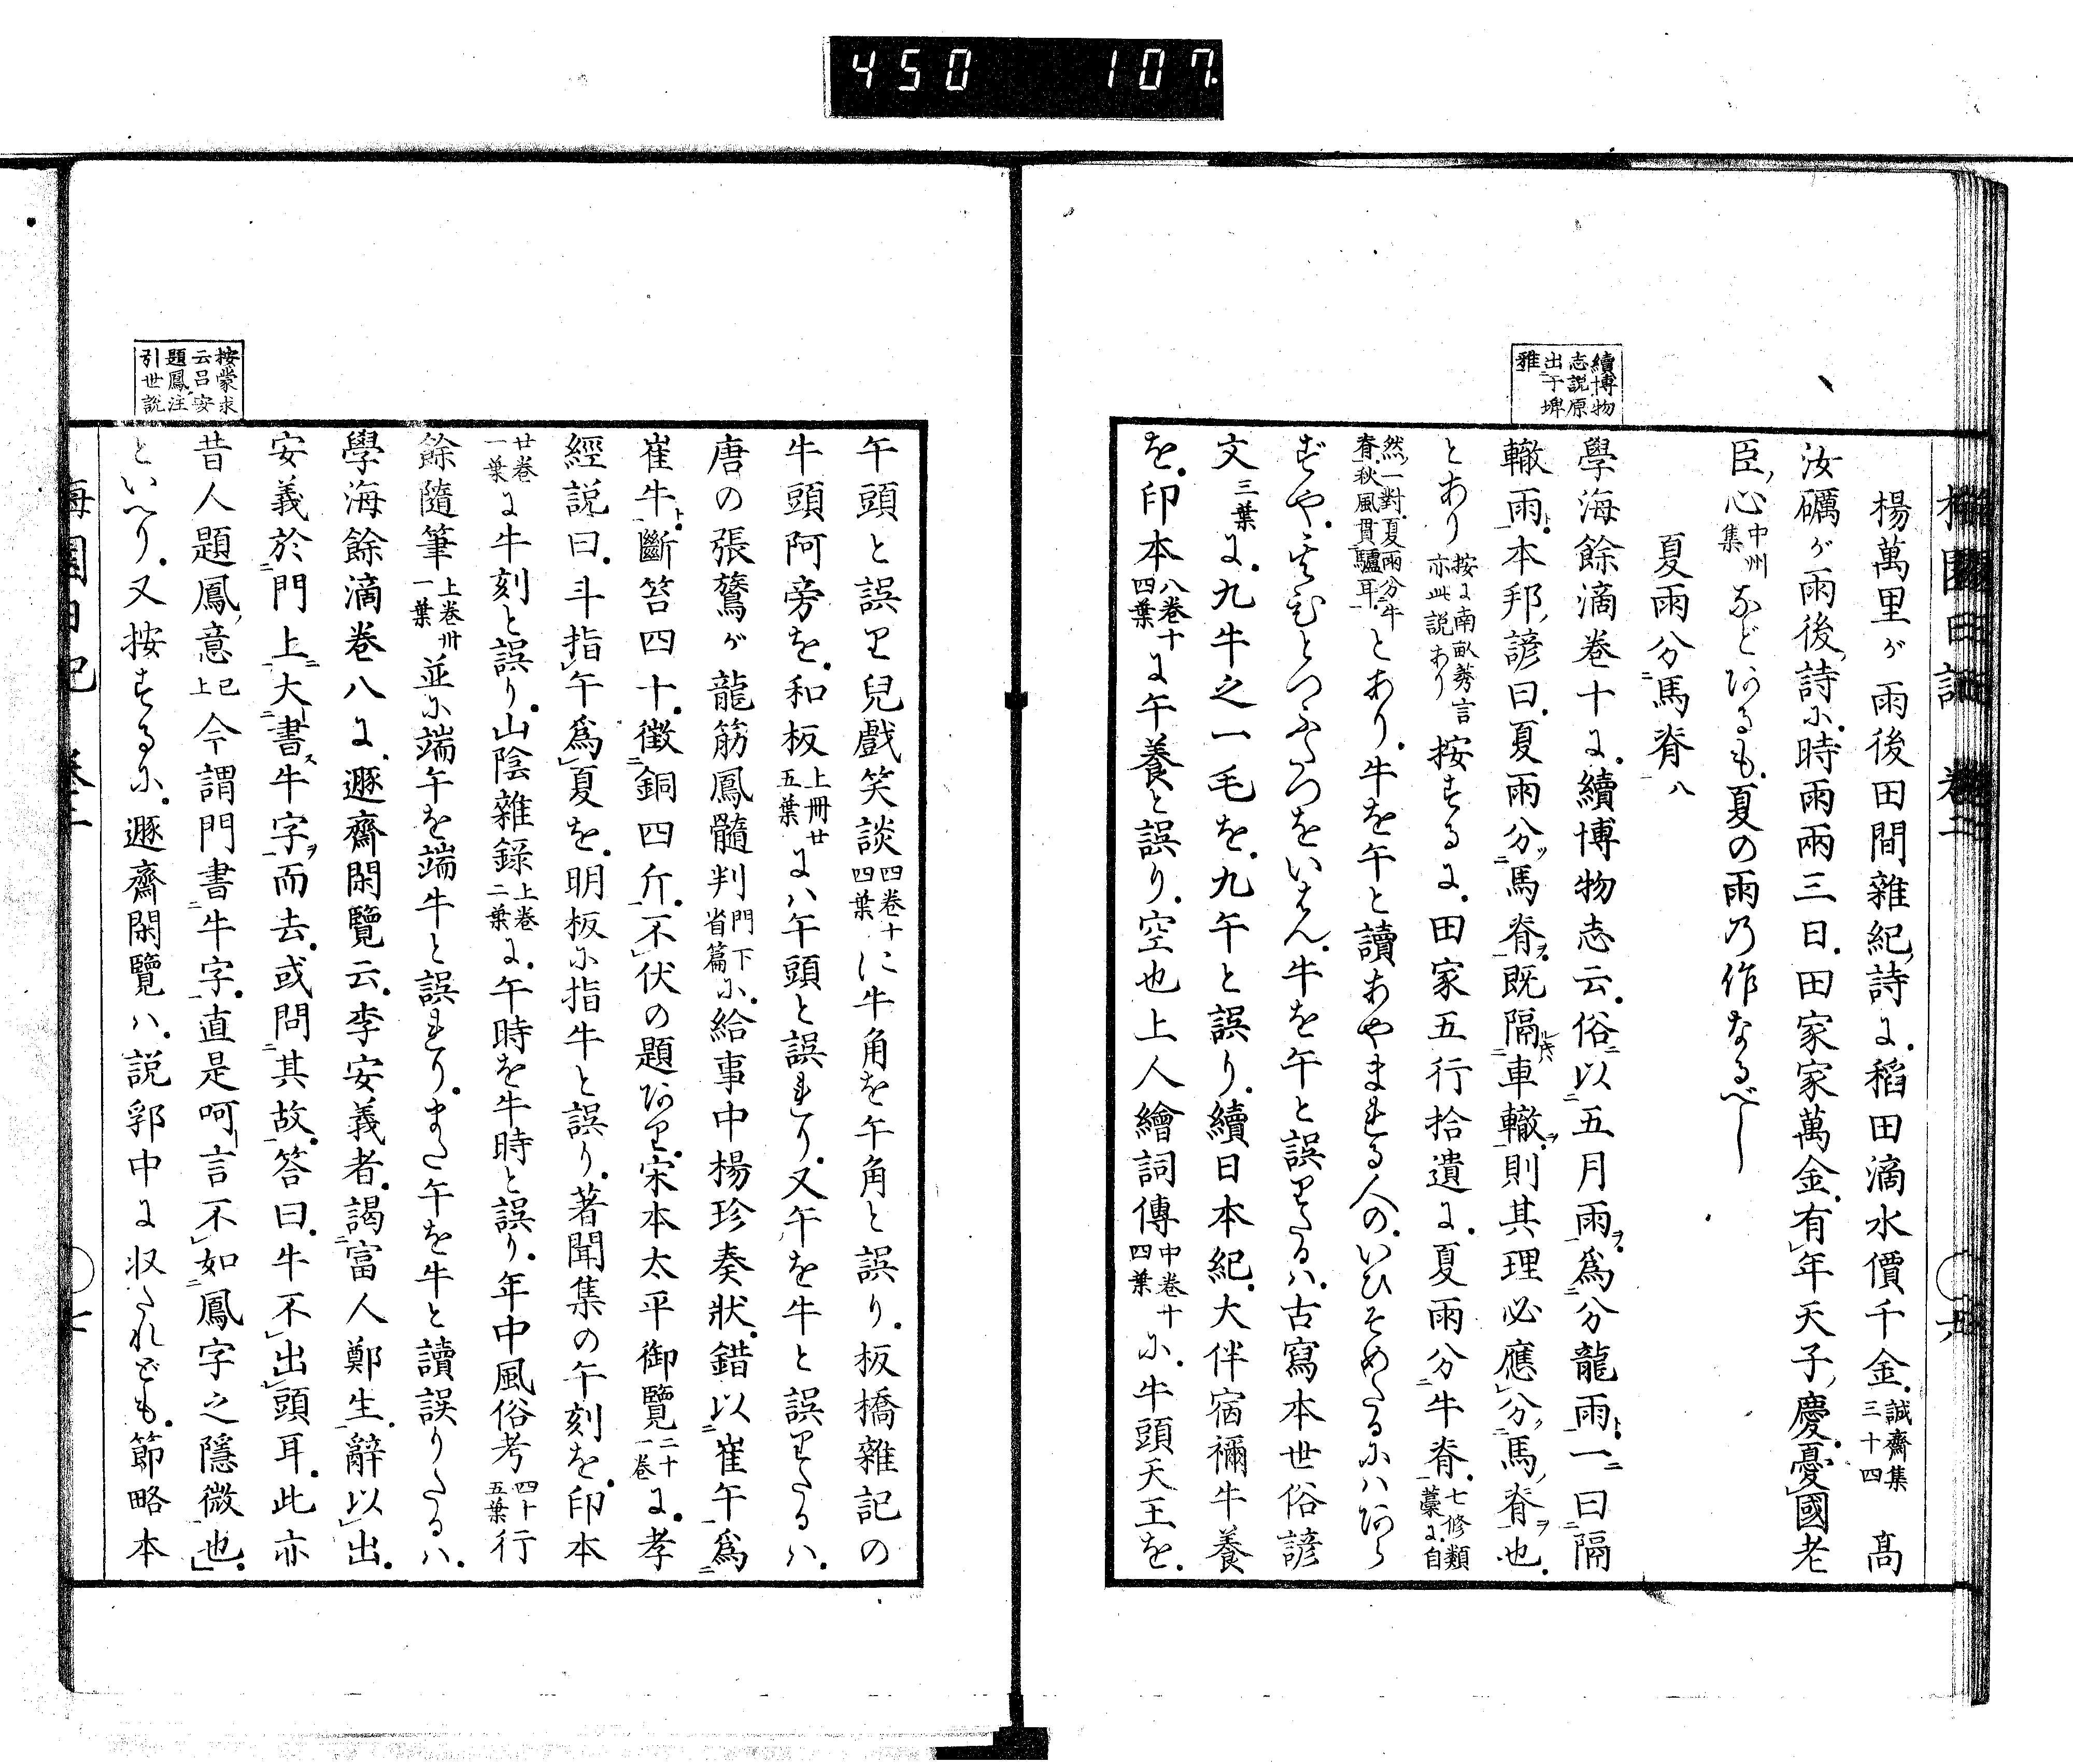 450 107
續博物
志説原
出于埤
雅
楊萬里が雨後田間雜紀詩に稻田滴水價千金誠齋集三十四 髙
汝礪が雨後詩に時雨兩三日田家家萬金有年天子慶憂國老
臣心中州集などあるも夏の雨乃作なるべし
夏雨分馬脊 八
學海餘滴卷十に續博物志云俗以五月雨爲分龍雨一曰隔
轍雨本邦諺曰夏雨分馬脊既隔車轍則其理必應分馬脊也
とあり按に南畝莠言亦此説あり按ずるに田家五行拾遺に夏雨分牛脊七修類藁に自
然一對夏雨分牛脊秋風貫驢耳とあり牛を午と讀あやまれる人のいひそめたるにハあら
文三葉に九牛之一毛を九午と誤り續日本紀大伴宿禰牛養
を印本八卷十四葉に午養と誤り空也上人繪詞傳中卷廿四葉に牛頭天王を
按蒙求
云呂安
題鳳注
引世説
午頭と誤り兒戲笑談四卷十四葉に牛角を午角と誤り板橋雜記の
牛頭阿旁を和板上冊廿五葉にハ午頭と誤れり又午を牛と誤りたるハ
唐の張鷟が龍筋鳳髓判門下省篇に給事中楊珍奏狀錯以崔午爲
崔牛斷笞四十徴銅四斤不伏の題あり宋本太平御覽二十一卷に孝
經説曰斗指午爲夏を明板に指牛と誤り著聞集の午刻を印本
廿卷一葉に牛刻と誤り山陰雜録上卷二葉に午時を牛時と誤り年中風俗考四十五葉行
餘隨筆上卷卅一葉並に端午を端牛と誤れりまた午を牛と讀誤りたるハ
學海餘滴卷八に遯齋閑覽云李安義者謁富人鄭生辭以出
安義於門上大書牛字而去或問其故答曰牛不出頭耳此亦
昔人題鳳意已上今謂門書牛字直是呵言不如鳳字之隱微也
といへり又按ずるに遯齋閑覽ハ説郛中に収たれども節略本